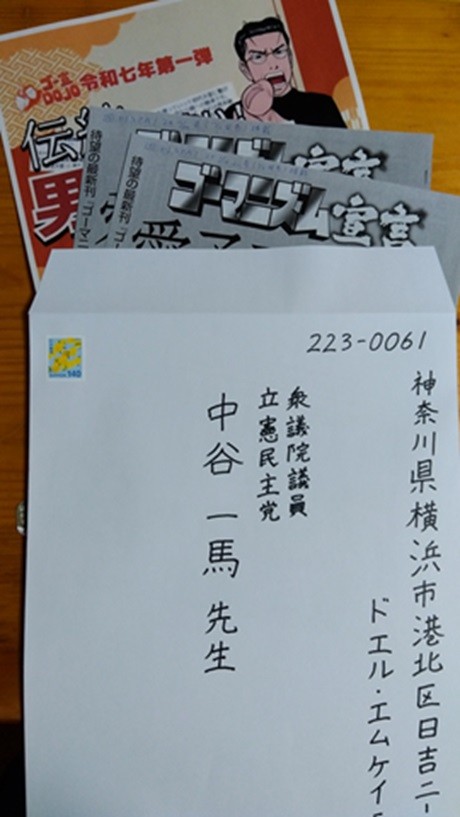 ゴー宣
DOJO
令和七年第一弾
伝
男
待望の最新刊『ゴーマニ
ゴーマニズム
宣言
待望の最新刊『ゴーマニ
ゴーマニズム
宣言
愛子
140
223-0061
神奈川県横浜市港北区日吉二
ドエル・エムケイ
衆議院議員
立憲民主党
中谷一馬 先生